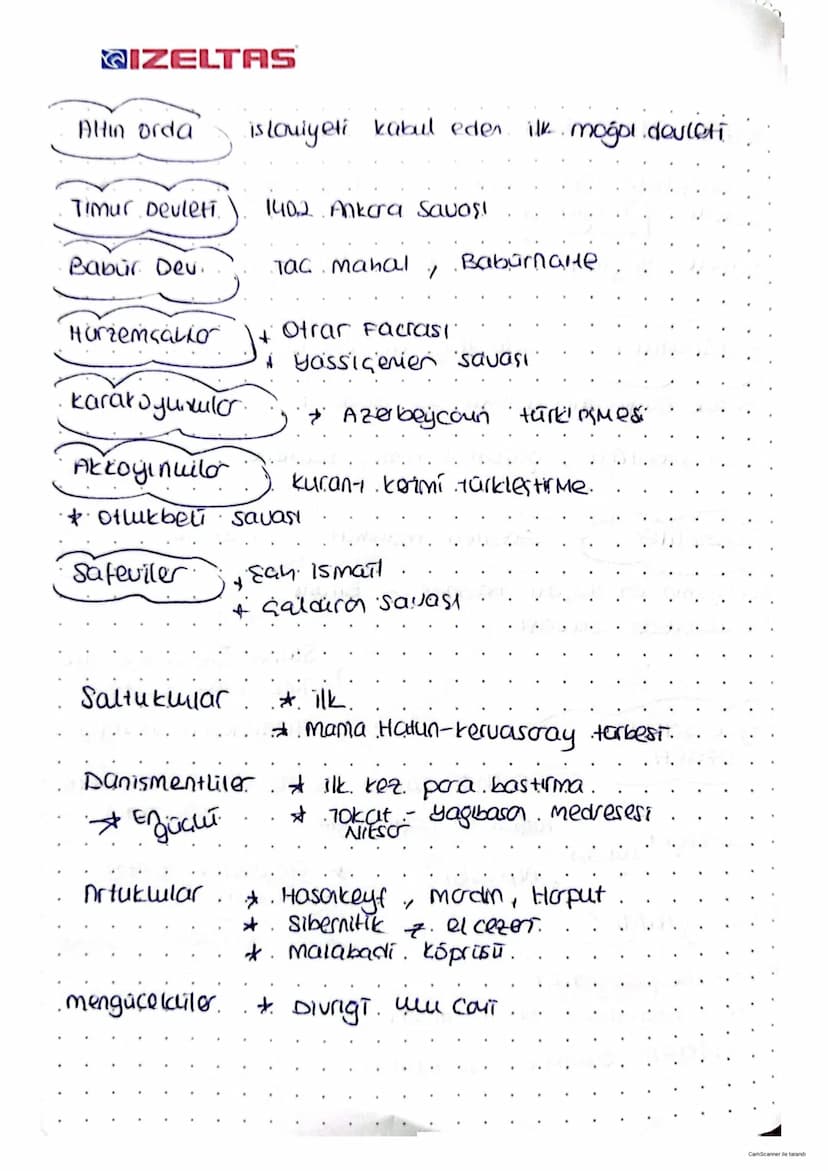 IZELTAS
Altın orda islamiyeti kabul eden ilk moğol devleti
Timur Devleti 1402 Ankara Savaşı
Babür Dev. Tac mahal, Babürname
Harzemşahlar + Otrar Faciası
+ Yassıçemen savaşı
Karakoyunlular → Azerbeycanın türkleşmesi
Akkoyunlular Kuran-ı kerimi türkleştirme.
* Otlukbeli savaşı
Safeviler + Şah ismail
+ Çaldıran savaşı
Saltuklular * ilk
* Mama Hatun-kervasaray türbesi.
Danismentliler * ilk kez para bastırma
→ En güçlü * Tokat - Yağıbasan medresesi
Niksar
Artuklular * Hasankeyf, mardin, Harput
* Sibernitik → el cezeri
* malabadi köprüsü
mengücekliler * Divriği ulu cami
CamScanner ile tarandı